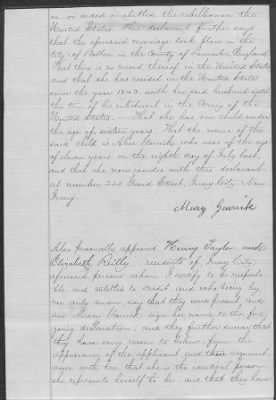 in, or aided or abetted the rebellion in the
United States. This declarant further says
that the aforesaid marriage took place in the
City of Bolton in the County of England
That there is no record thereof in the United States
and that she has resided in the United States
since the year 18 with her said husband
the time of his enlistment in the Army of the
United States. That she has one child under
the age of sixteen years. That the name of the
said child is Alice who was of the age
of eleven years on the eighth day of July last,
and that she now resides with this declarant
at number 220 Grand Street, Jersey City New
Jersey.
Mary
Also personally appeared Henry Taylor and
Elizabeth Reilly, residents of Jersey City
aforesaid persons whom I certify to be respecta-
ble, and entitled to credit and who being by
me duly sworn say that they were present and
saw sign her name to the fore-
going declaration; and they further swear that
they have every reason to believe from the
appearance of the applicant and their acquaint-
ance with her that she is the identical person
she represents herself to be, and that they have